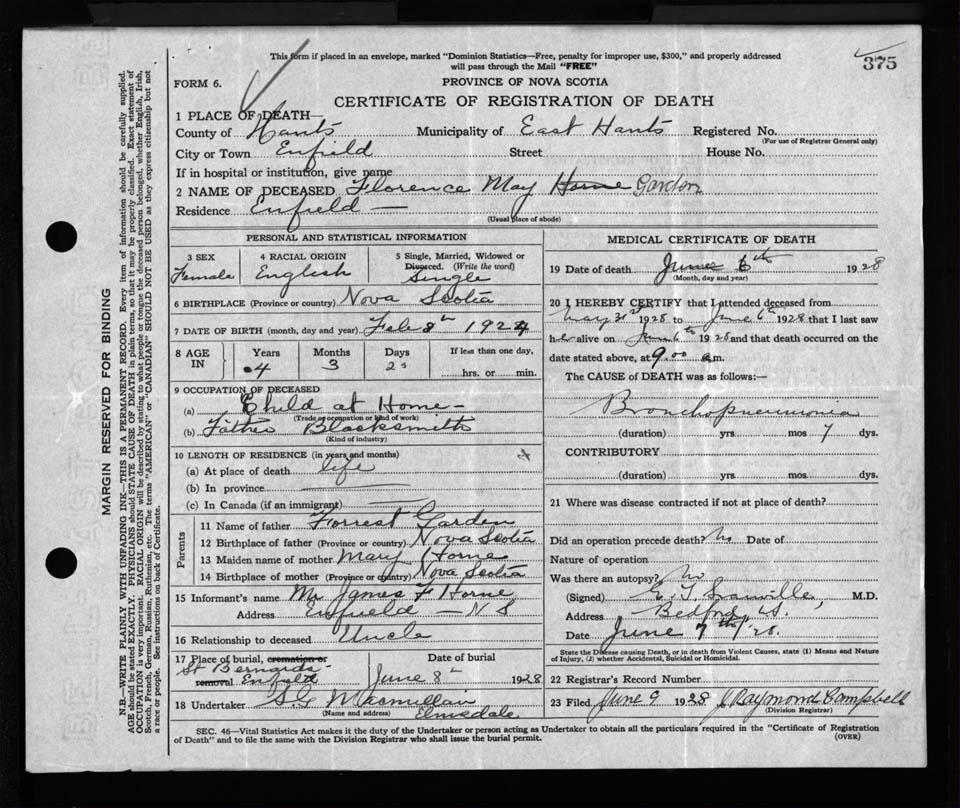 This form if placed in an envelope, marked "Dominion Statistics—Free, penalty for improper use, $300," and properly addressed
will pass through the Mail "FREE"
375
FORM 6.
PROVINCE OF NOVA SCOTIA
CERTIFICATE OF REGISTRATION OF DEATH
1 PLACE OF DEATH—
County of Hants Municipality of East Hants Registered No.
(For use of Registrar General only)
City or Town Enfield Street House No.
If in hospital or institution, give name
2 NAME OF DECEASED Florence May Horne Gardon
Residence Enfield —
(Usual place of abode)
PERSONAL AND STATISTICAL INFORMATION
3 SEX 4 RACIAL ORIGIN 5 Single, Married, Widowed or
Divorced. (Write the word)
Female English Single
6 BIRTHPLACE (Province or country) Nova Scotia
7 DATE OF BIRTH (month, day and year) Feb 8th 1924
8 AGE IN Years Months Days If less than one day,
4 3 hrs. or min.
9 OCCUPATION OF DECEASED
(a) Child at Home —
(Trade occupation or kind of work)
(b) Father Blacksmith
(Kind of industry)
10 LENGTH OF RESIDENCE (in years and months)
(a) At place of death life
(b) In province
(c) In Canada (if an immigrant)
Parents
11 Name of father Forrest Garden
12 Birthplace of father (Province or country) Nova Scotia
13 Maiden name of mother Mary Horne
14 Birthplace of mother (Province or country) Nova Scotia
15 Informant's name Mr James F Horne
Address Enfield — N S
16 Relationship to deceased Uncle
17 Place of burial, cremation or Date of burial
St Bernards
removal Enfield June 8th 1928
18 Undertaker Macmillan
(Name and address) Elmsdale
MEDICAL CERTIFICATE OF DEATH
19 Date of death June 6th 1928
(Month, day and year)
20 I HEREBY CERTIFY that I attended deceased from
May 31st 1928 to June 6th 1928 that I last saw
her alive on June 6th 1928 and that death occurred on the
date stated above, at 9.00 a.m.
The CAUSE of DEATH was as follows:—
Bronchopneumonia
(duration) yrs. mos 7 dys.
CONTRIBUTORY
(duration) yrs. mos. dys.
21 Where was disease contracted if not at place of death?
Did an operation precede death? No Date of
Nature of operation
Was there an autopsy? No
(Signed) M.D.
Address Bedford
Date June 7th/28.
State the Disease causing Death, or in death from Violent Causes, state (1) Means and Nature
of Injury, (2) whether Accidental, Suicidal or Homicidal.
22 Registrar's Record Number
23 Filed June 9 1928 J Raymond Campbell
(Division Registrar)
SEC. 46—Vital Statistics Act makes it the duty of the Undertaker or person acting as Undertaker to obtain all the particulars required in the "Certificate of Registration
of Death" and to file the same with the Division Registrar who shall issue the burial permit.
(OVER)
MARGIN RESERVED FOR BINDING
N.B.—WRITE PLAINLY WITH UNFADING INK—THIS IS A PERMANENT RECORD. Every item of information should be carefully supplied.
AGE should be stated EXACTLY. PHYSICIANS should STATE CAUSE OF DEATH in plain terms, so that it may be properly classified. Exact statement of
OCCUPATION is very important. RACIAL ORIGIN will be described by stating to what people or tongue the deceased person belonged, whether English, Irish,
Scotch, French, German, Russian, Ruthenian, etc. The terms "AMERICAN" or "CANADIAN" SHOULD NOT BE USED as they express citizenship but not
a race or people. See instructions on back of Certificate.